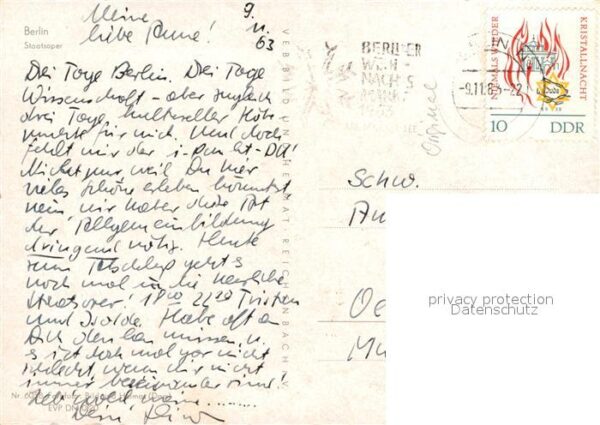 Berlin
Staatsoper
Meine
liebe
9. 11. 63
Drei Tage Berlin. Drei Tage
Wissenschaft – aber zugleich
drei Tage kultureller Höhe-
punkte für mich. Und doch
fehlt mir der i-Punkt - DU!
Nicht nur, weil Du hier
vieles Schöne erleben könntest
nein, wir haben diese Art
der Allgemeinbildung
dringend nötig. Heute
zum Abschluß geht's
noch mal in die herrliche
Staatsoper! 18.00 - 22.30 Tristan
und Isolde. Habe oft an
Dich denken müssen, u.
es ist doch mal gar nicht
schlecht, wenn wir nicht
immer beieinander sind!
Leb wohl meine ........
Dein
VERBUND HEIMAT REICHENBACH V
EVP DM
BERLINER
WEIH
NACHTS
MARKT
-9.11.63-22
NIEMALS WIEDER
KRISTALLNACHT
Jude
10 DDR
Schw.
privacy protection
Datenschutz